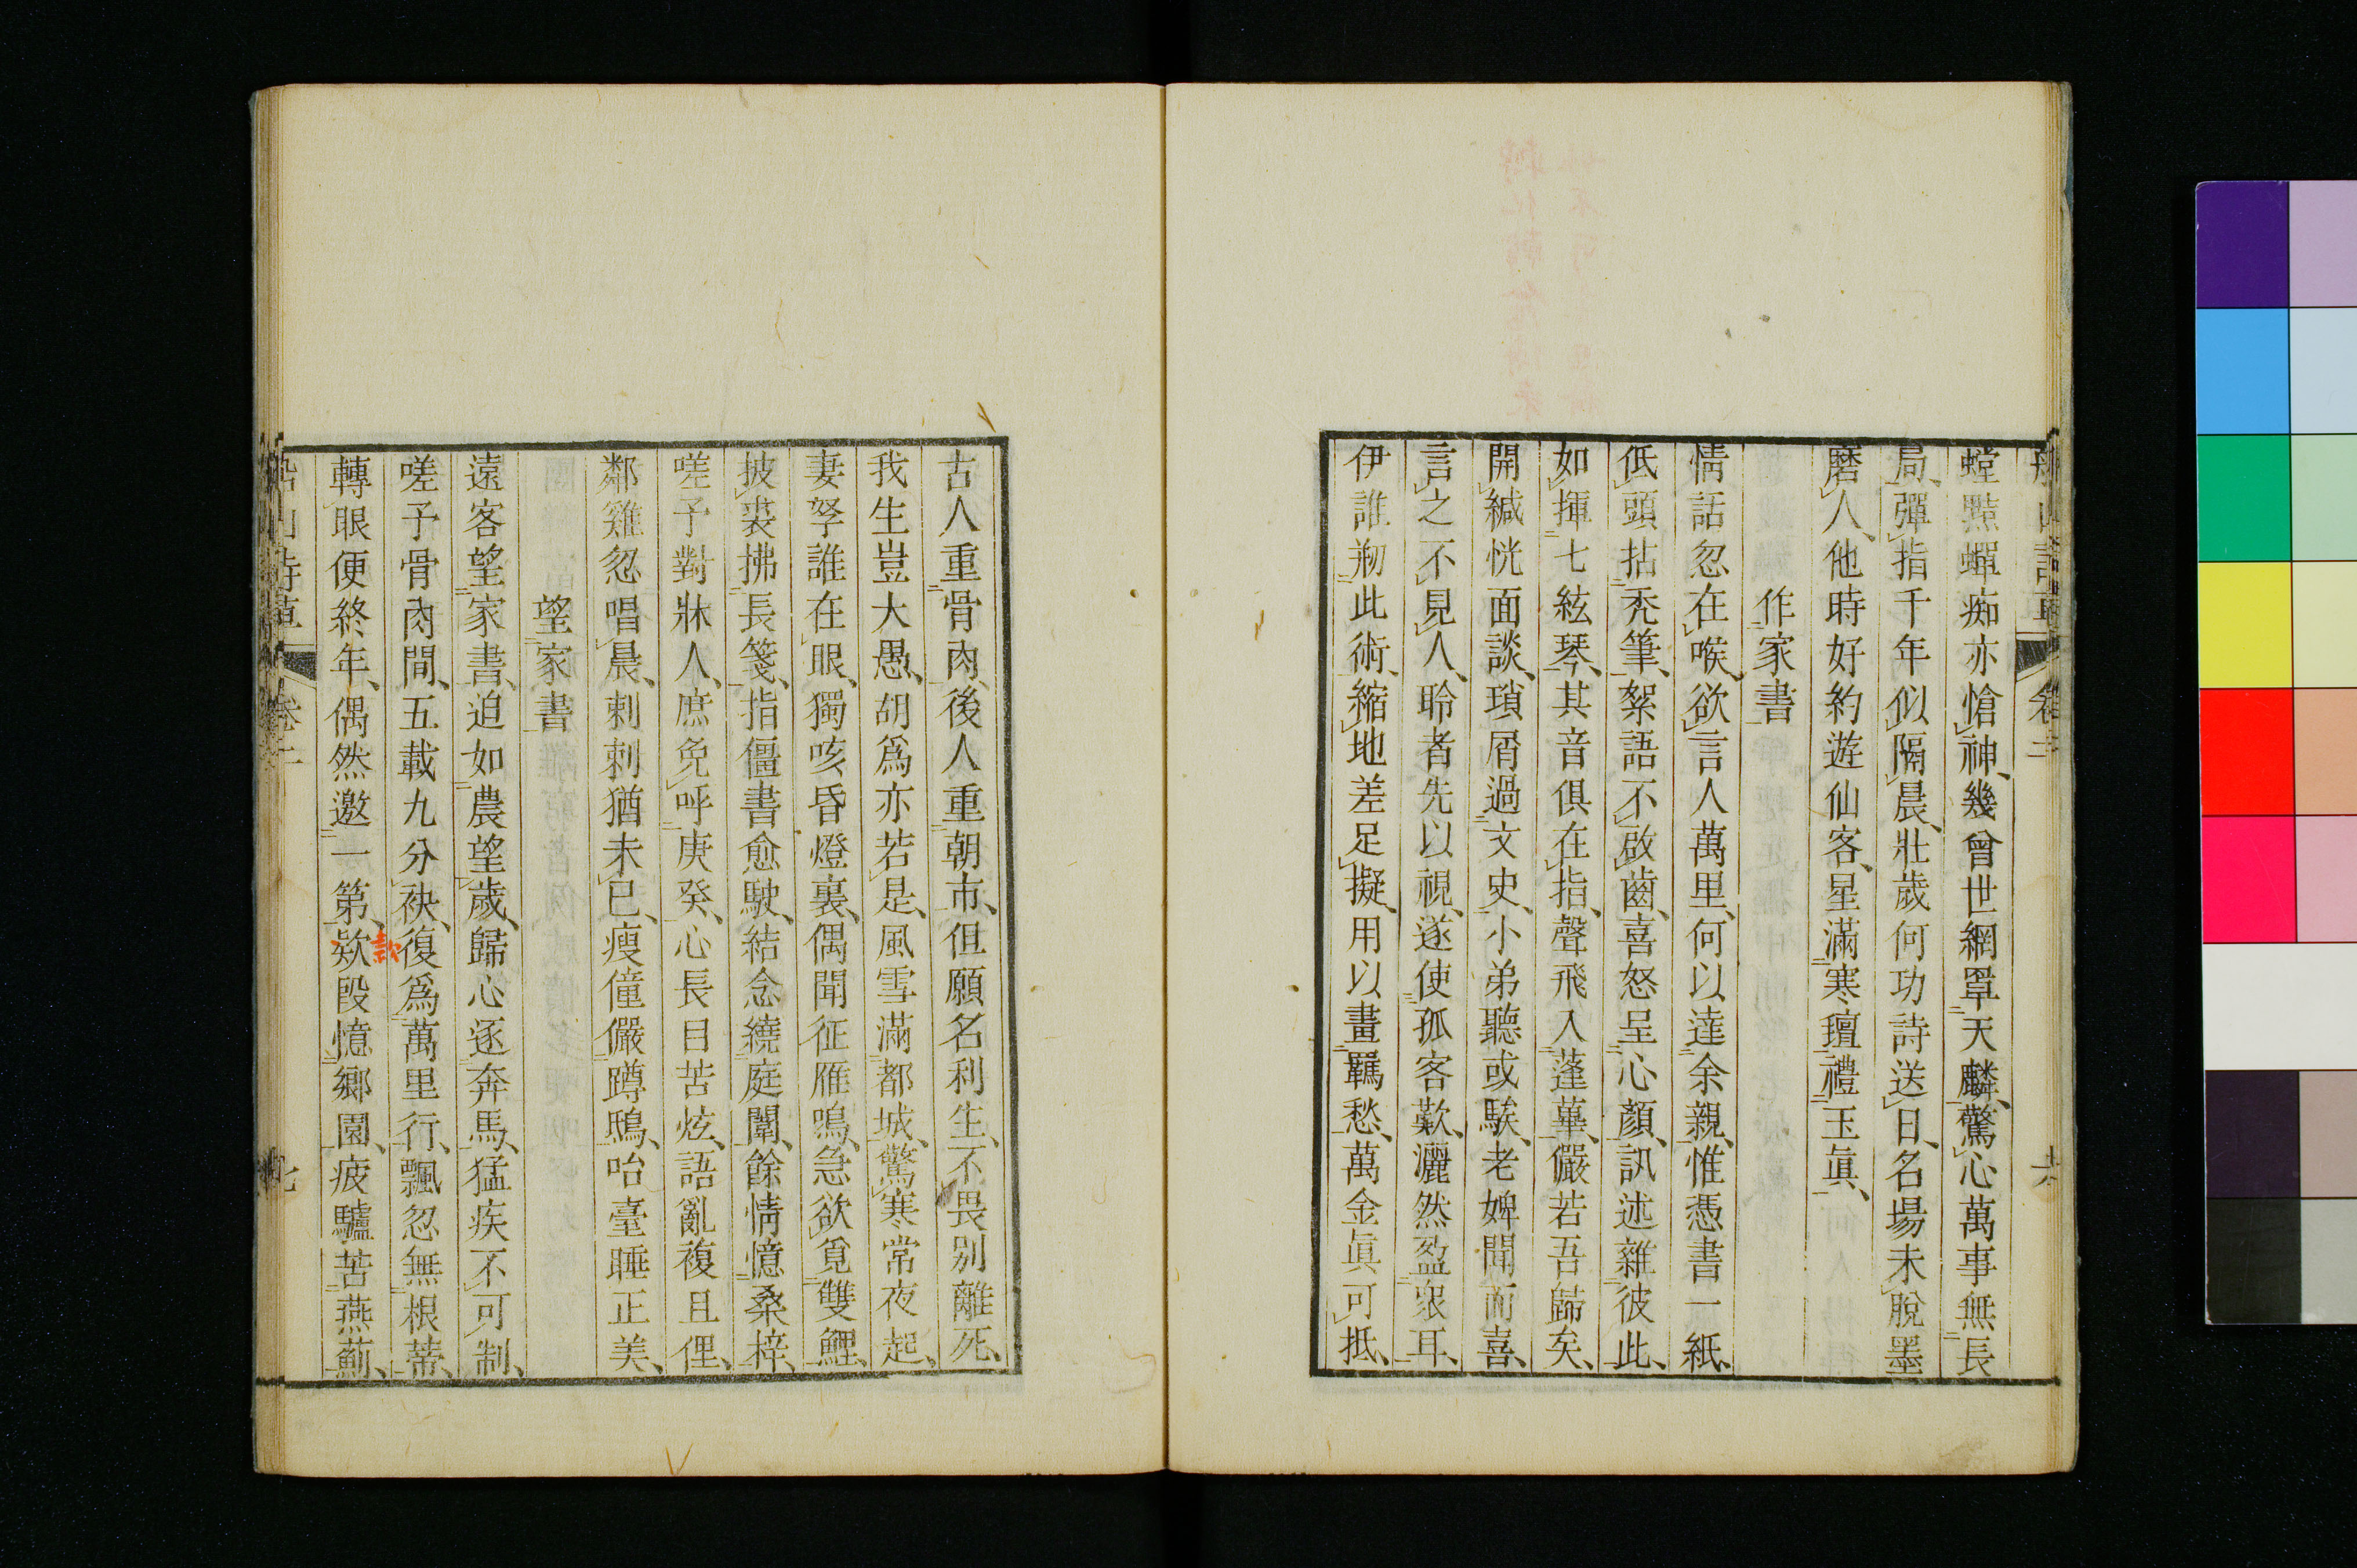 螳黠蟬痴亦愴神幾曾世網罩天麟驚心萬事無長
局彈指千年似隔晨壯歲何功詩送日名場未脫墨
磨人他時好約遊仙客星滿寒壇禮玉眞
作家書
情話忽在喉欲言人萬里何以達余親惟憑書一紙
低頭拈禿筆絮語不啟齒喜怒呈心顏訊述雜彼此
如揮七絃琴其音俱在指聲飛入蓬蓽儼若吾歸矣
開緘恍面談瑣屑過文史小弟聽或騃老婢聞而喜
言之不見人聆者先以視遂使孤客歎灑然盈眾耳
伊誰剏此術縮地差足擬用以畫羈愁萬金眞可抵
古人重骨肉後人重朝市但願名利生不畏別離死
我生豈大愚胡爲亦若是風雪滿都城驚寒常夜起
妻孥誰在眼獨咳昏燈裏偶聞征雁鳴急欲覓雙鯉
披裘拂長箋指僵書愈駛結念繞庭闈餘情憶桑梓
嗟予對牀人庶免呼庚癸心長目苦炫語亂複且俚
鄰雞忽唱晨剌剌猶未已瘦僮儼蹲鴟咍臺睡正美
望家書
遠客望家書迫如農望歲歸心逐奔馬猛疾不可制
嗟予骨肉間五載九分袂復爲萬里行飄忽無根蒂
轉眼便終年偶然邀一第欵段憶鄉園疲驢苦燕薊
款
船山詩草 卷二